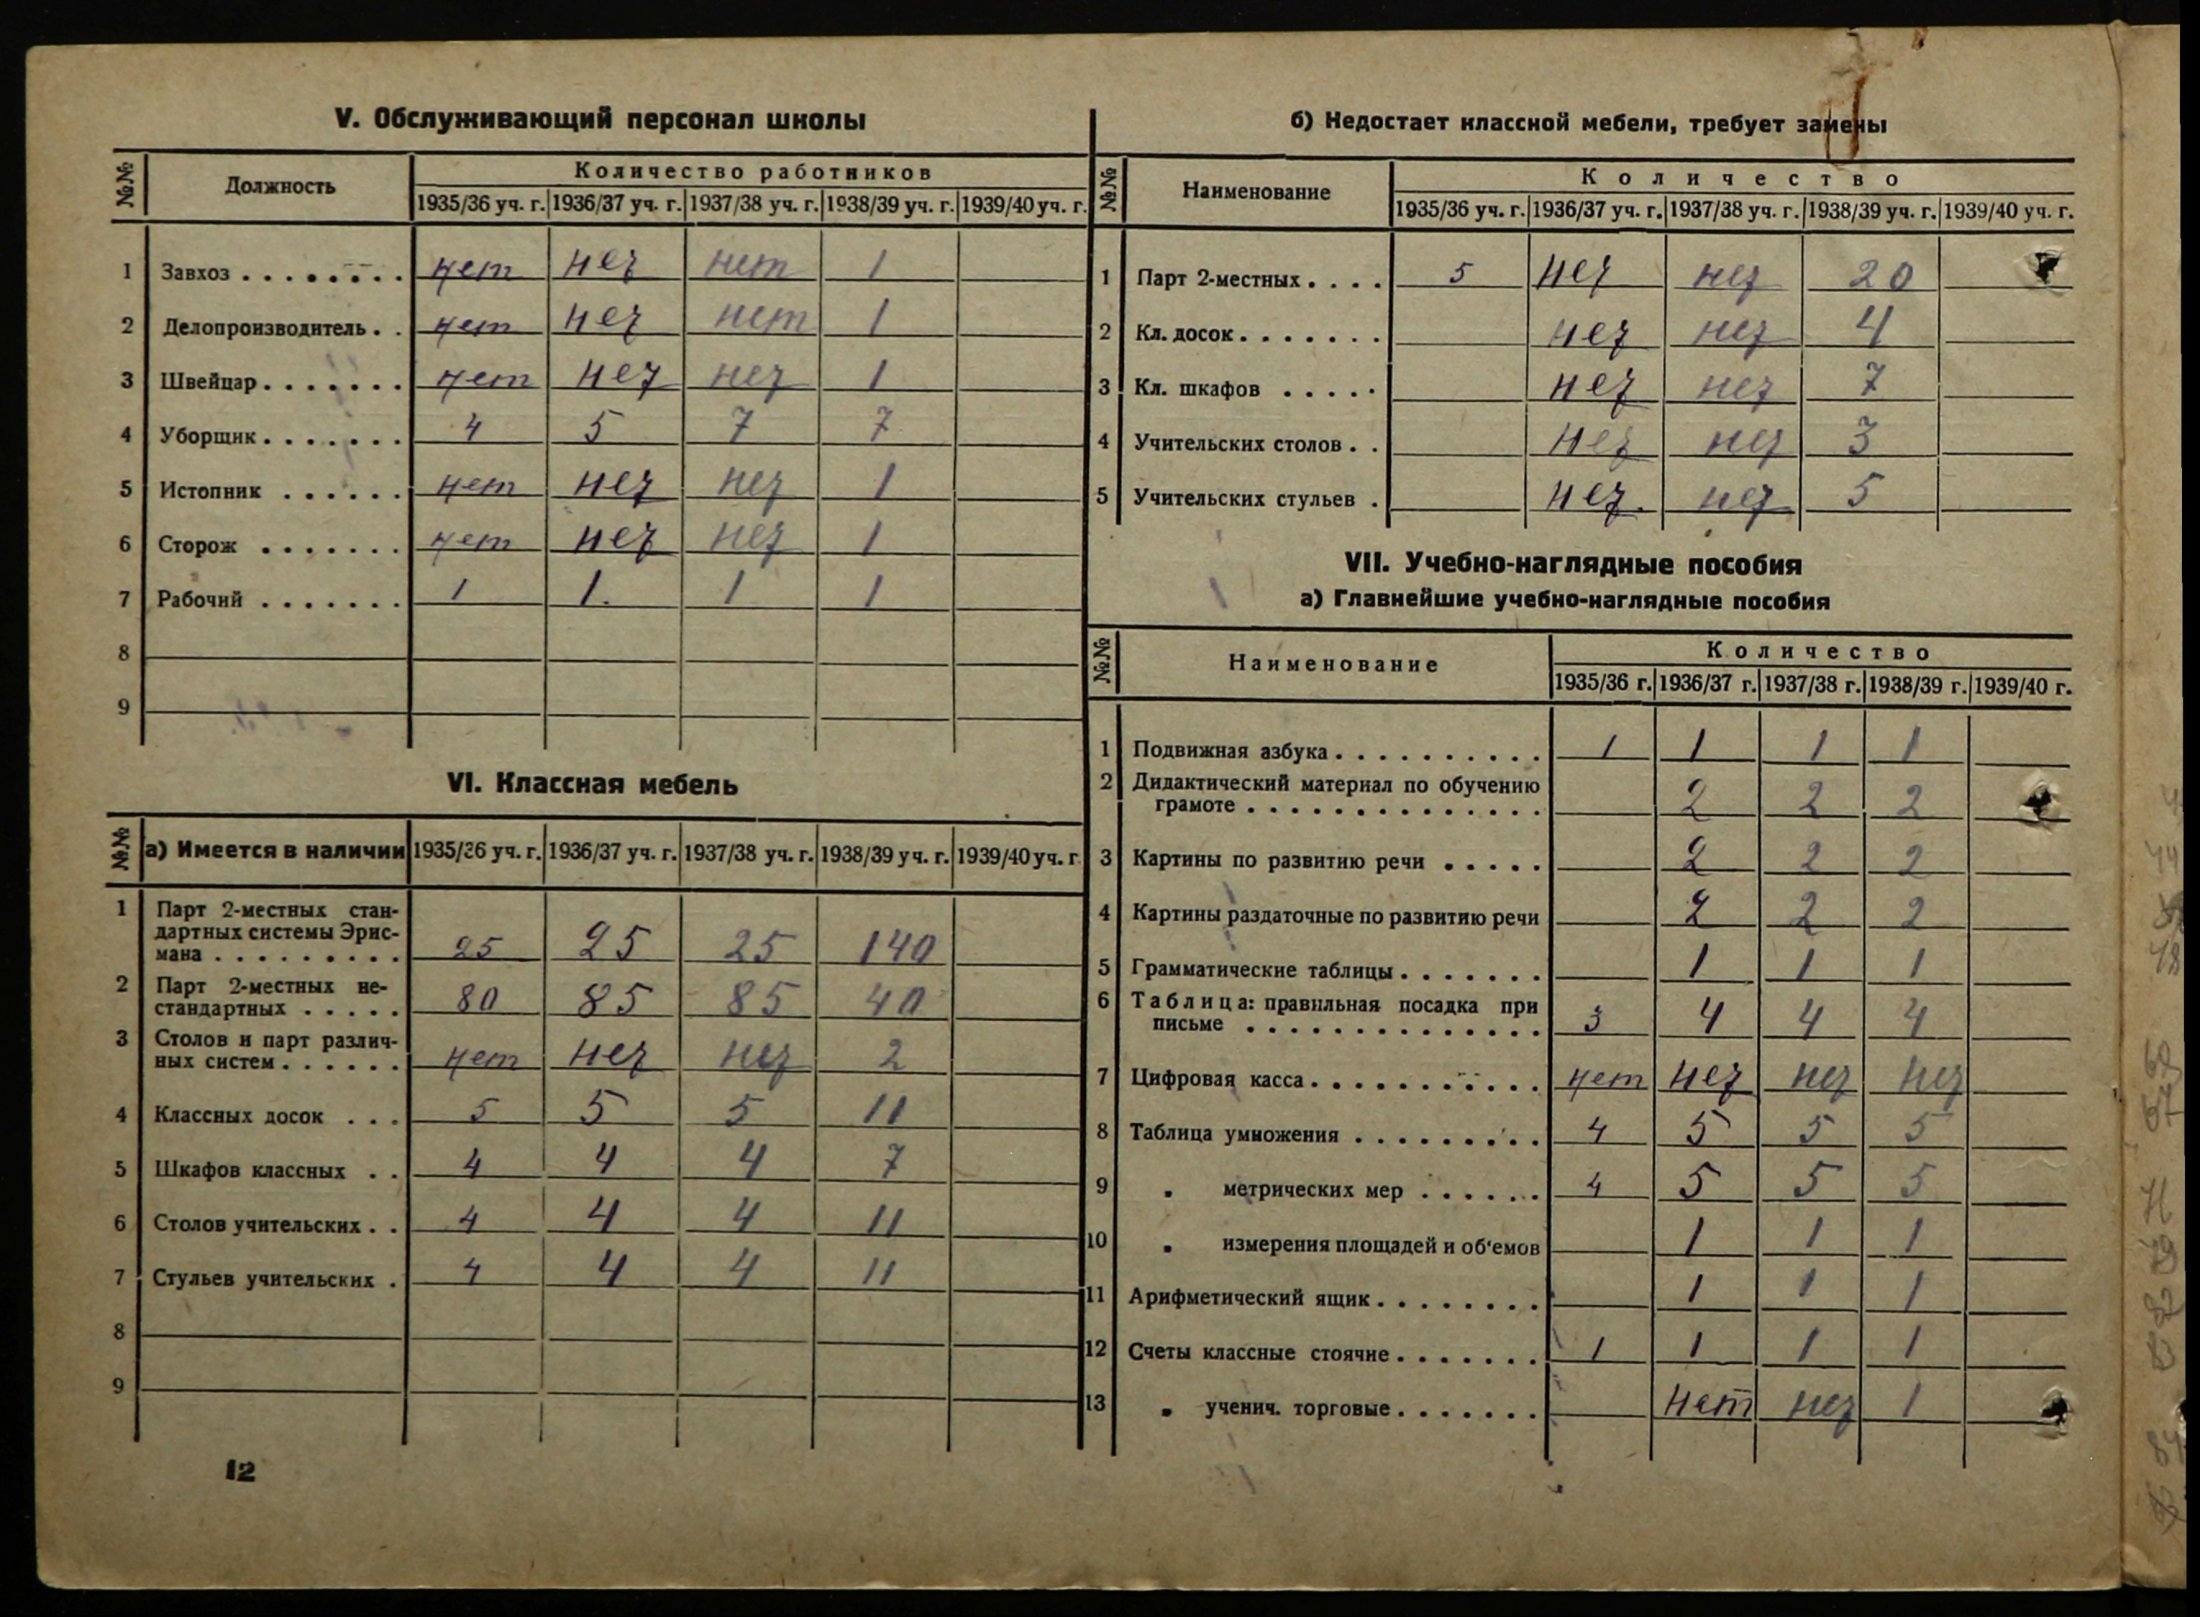 V. Обслуживающий персонал школы
№№ Должность Количество работников
1935/36 уч. г. 1936/37 уч. г. 1937/38 уч. г. 1938/39 уч. г. 1939/40 уч. г.
1 Завхоз нет нет нет 1
2 Делопроизводитель нет нет нет 1
3 Швейцар нет нет нет 1
4 Уборщик 4 5 7 7
5 Истопник нет нет нет 1
6 Сторож нет нет нет 1
7 Рабочий 1 1. 1 1
8
9
VI. Классная мебель
№№ а) Имеется в наличии 1935/36 уч. г. 1936/37 уч. г. 1937/38 уч. г. 1938/39 уч. г. 1939/40 уч. г.
1 Парт 2-местных стан-
дартных системы Эрис-
мана 25 25 25 140
2 Парт 2-местных не-
стандартных 80 85 85 40
3 Столов и парт различ-
ных систем нет нет нет 2
4 Классных досок 5 5 5 11
5 Шкафов классных 4 4 4 7
6 Столов учительских 4 4 4 11
7 Стульев учительских 4 4 4 11
8
9
12
б) Недостает классной мебели, требует замены
№№ Наименование Количество
1935/36 уч. г. 1936/37 уч. г. 1937/38 уч. г. 1938/39 уч. г. 1939/40 уч. г.
1 Парт 2-местных 5 нет нет 20
2 Кл. досок нет нет 4
3 Кл. шкафов нет нет 7
4 Учительских столов нет нет 3
5 Учительских стульев нет нет 5
VII. Учебно-наглядные пособия
а) Главнейшие учебно-наглядные пособия
№№ Наименование Количество
1935/36 г. 1936/37 г. 1937/38 г. 1938/39 г. 1939/40 г.
1 Подвижная азбука 1 1 1 1
2 Дидактический материал по обучению
грамоте 2 2 2
3 Картины по развитию речи 2 2 2
4 Картины раздаточные по развитию речи 2 2 2
5 Грамматические таблицы 1 1 1
6 Таблица: правильная посадка при
письме 3 4 4 4
7 Цифровая касса нет нет нет нет
8 Таблица умножения 4 5 5 5
9 " метрических мер 4 5 5 5
10 " измерения площадей и об'емов 1 1 1
11 Арифметический ящик 1 1 1
12 Счеты классные стоячие 1 1 1 1
13 " ученич. торговые нет нет 1